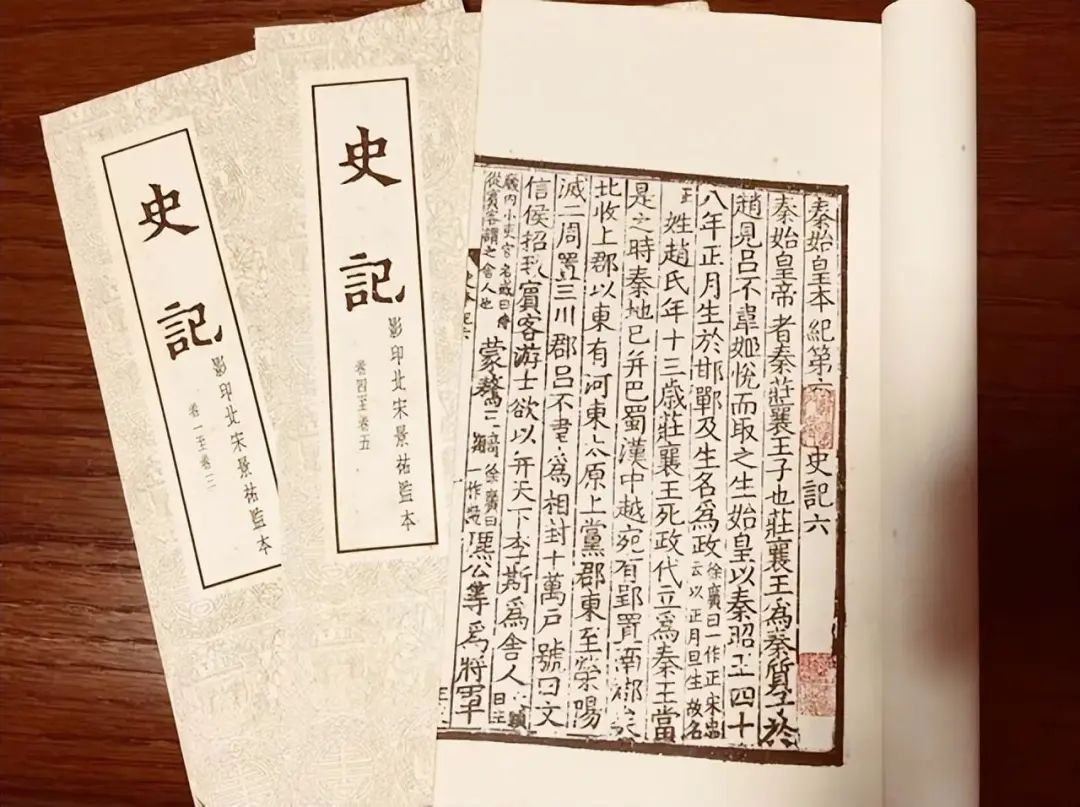 史記
影印北宋景祐監本
卷一至卷三
史記
影印北宋景祐監本
卷四至卷五
秦始皇本紀第六 史記六
秦始皇帝者秦莊襄王子也莊襄王爲秦質子於
趙見呂不韋姬悅而取之生始皇以秦昭王四十
八年正月生於邯鄲及生名爲政
徐廣曰一作正宋忠
云以正月旦生故名
正
姓趙氏年十三歲莊襄王死政代立爲秦王當
是之時秦地已并巴蜀漢中越宛有郢置南郡矣
北收上郡以東有河東太原上黨郡東至滎陽
滅二周置三川郡呂不韋爲相封十萬戶號曰文
信侯招致賓客游士欲以并天下李斯爲舍人
曰主
廏內小吏官名或曰侍
從賓客謂之舍人也
蒙驁王齮
徐廣曰
一作齕
麃公等爲將軍